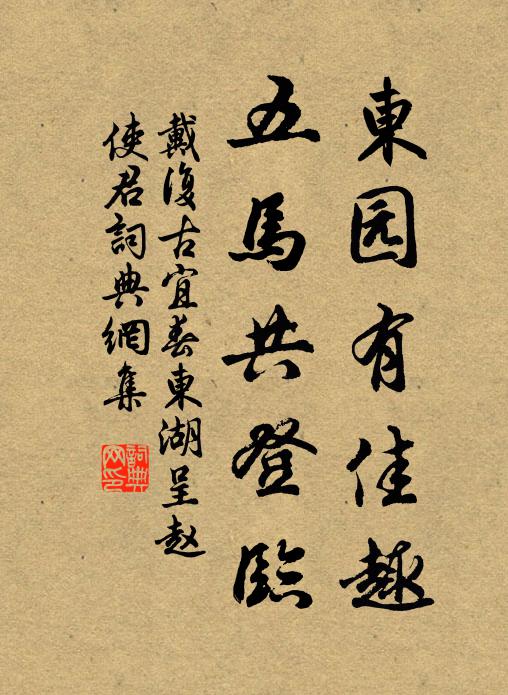 東园有佳趣
五馬共登臨
戴復古宜春東湖呈赵
使君詞典網集
詞典
网印